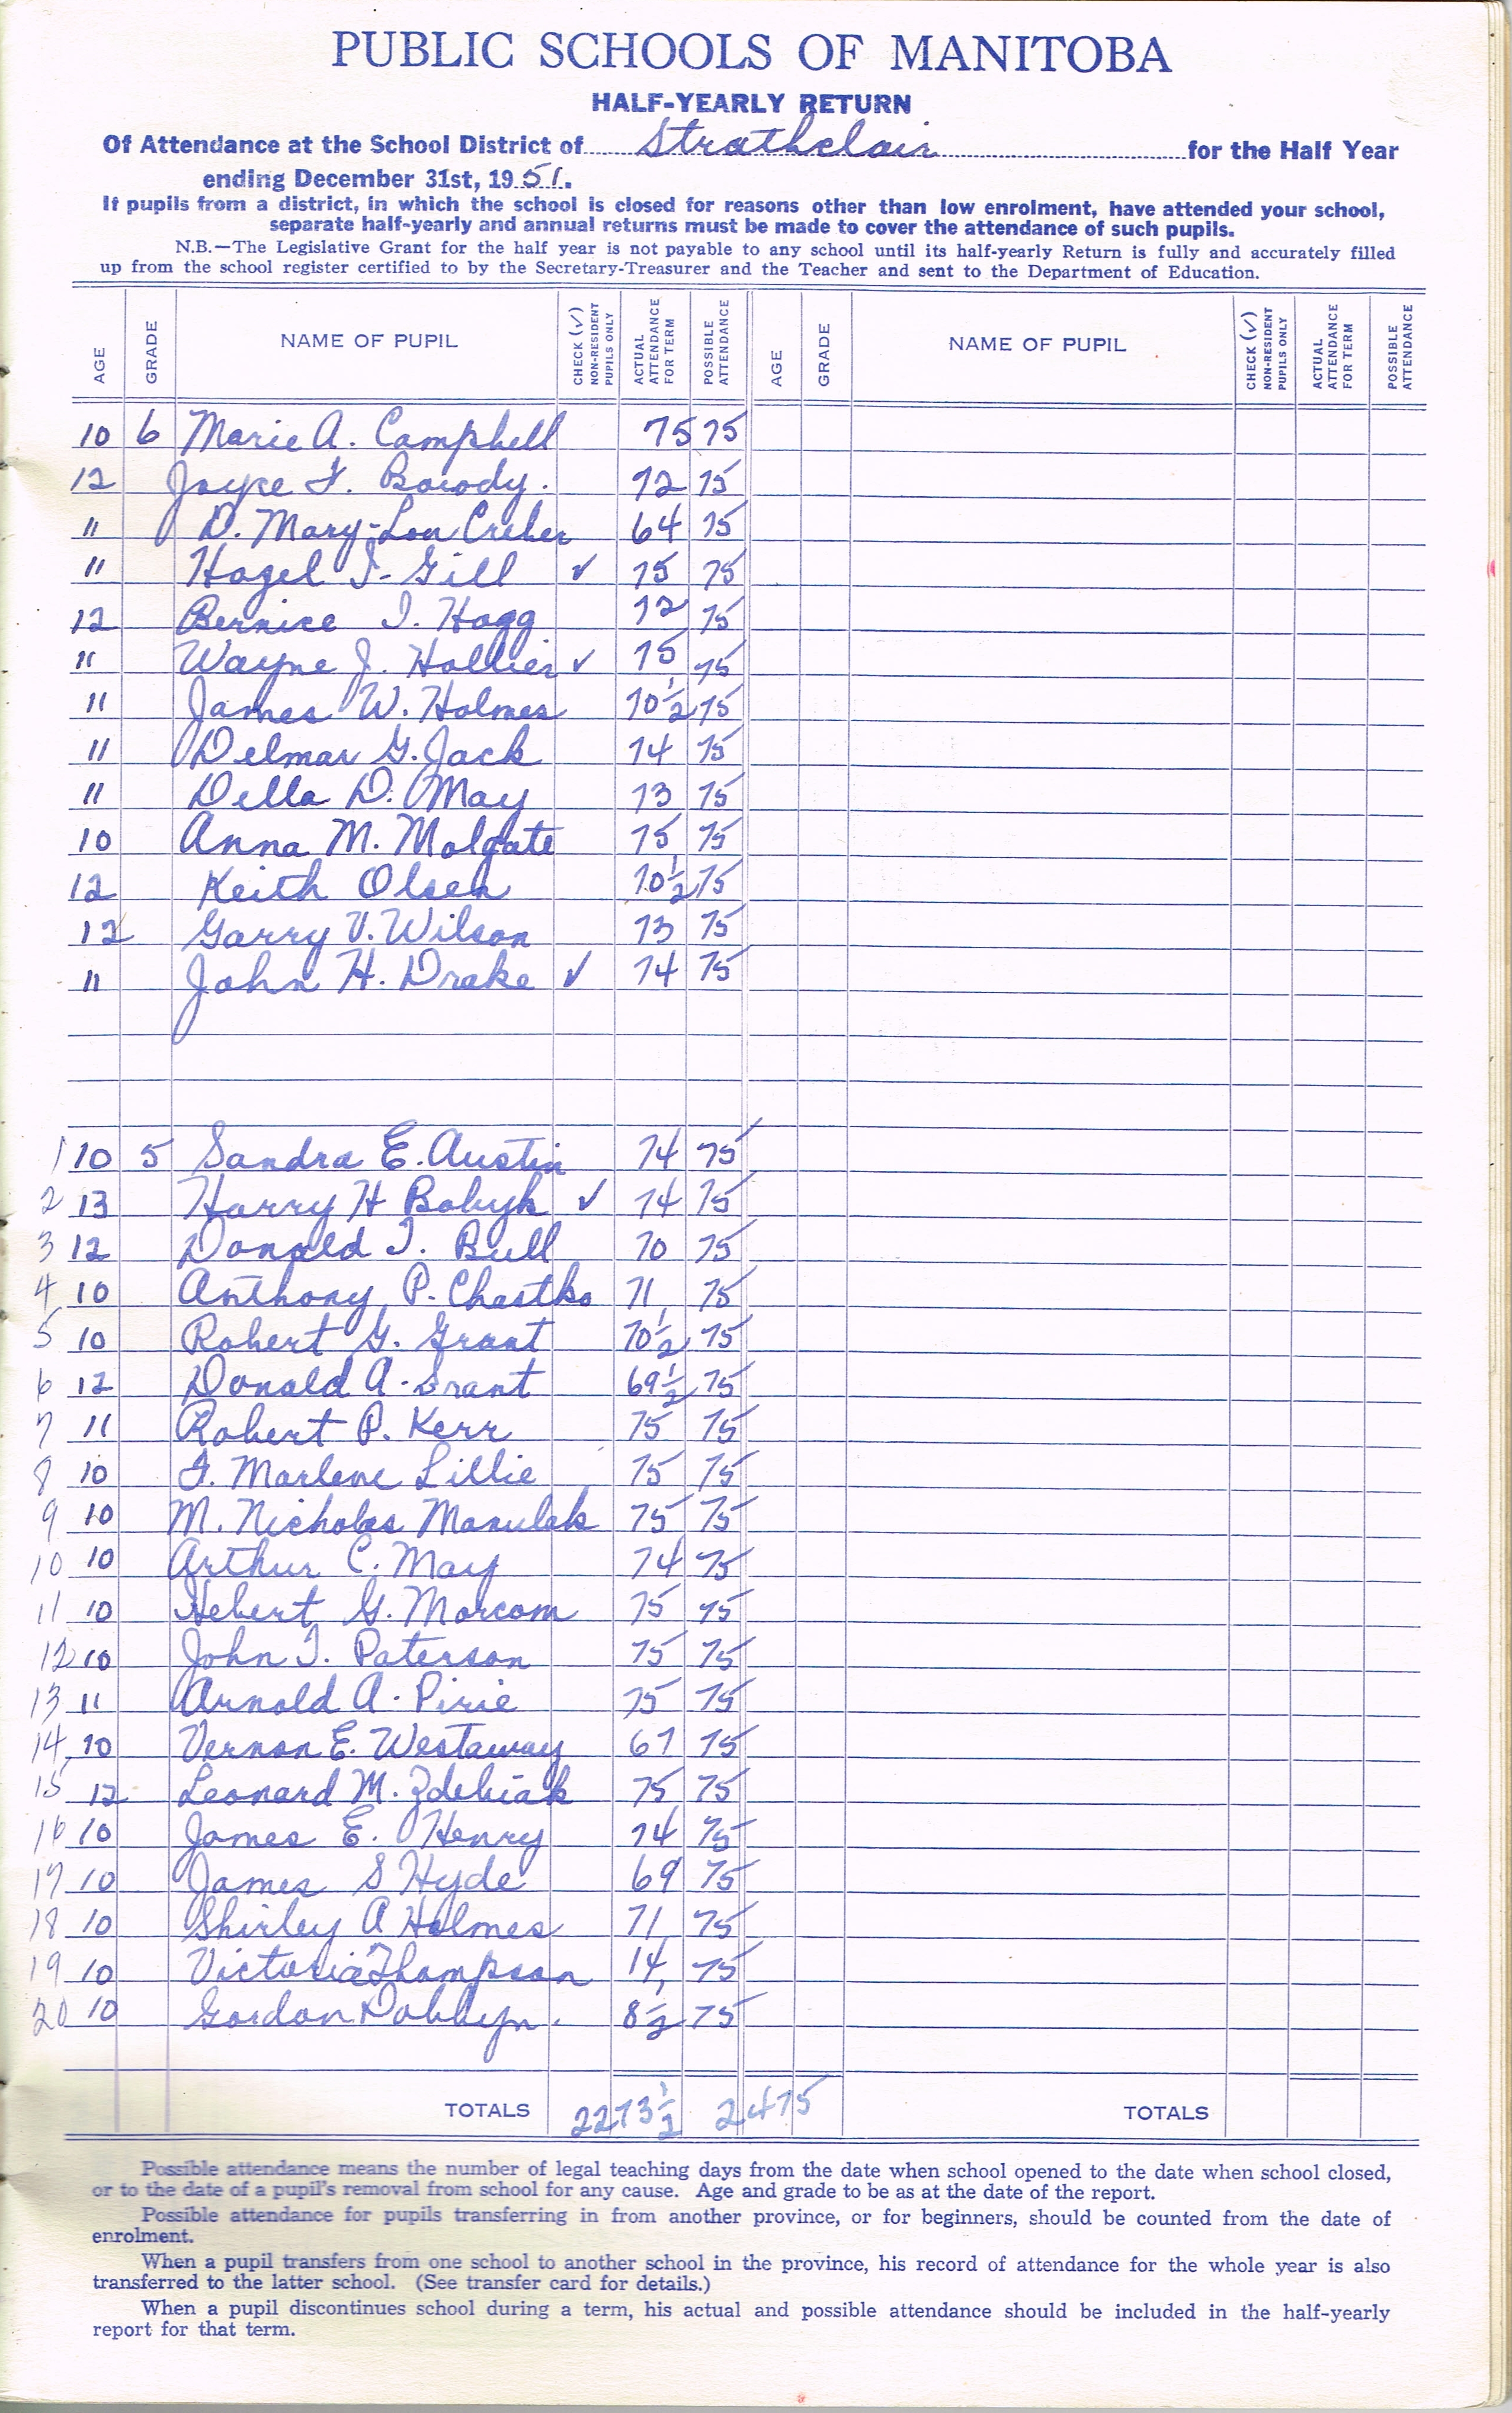 PUBLIC SCHOOLS OF MANITOBA
HALF-YEARLY RETURN
Of Attendance at the School District of Strathclair for the Half Year
ending December 31st, 1951.
If pupils from a district, in which the school is closed for reasons other than low enrolment, have attended your school,
separate half-yearly and annual returns must be made to cover the attendance of such pupils.
N.B.—The Legislative Grant for the half year is not payable to any school until its half-yearly Return is fully and accurately filled
up from the school register certified to by the Secretary-Treasurer and the Teacher and sent to the Department of Education.
AGE GRADE NAME OF PUPIL CHECK (✓) NON-RESIDENT PUPILS ONLY ACTUAL ATTENDANCE FOR TERM POSSIBLE ATTENDANCE AGE GRADE NAME OF PUPIL CHECK (✓) NON-RESIDENT PUPILS ONLY ACTUAL ATTENDANCE FOR TERM POSSIBLE ATTENDANCE
10 6 Marie A. Campbell 75 75
12 Joyce F. Borody. 72 75
11 D. Mary-Lou Creber 64 75
11 Hazel I. Gill ✓ 75 75
12 Bernice I. Hogg 72 75
11 Wayne J. Hollier ✓ 75 75
11 James W. Holmes 70½ 75
11 Delmar G. Jack 74 75
11 Della D. May 73 75
10 Anna M. Molgate 75 75
12 Keith Olsen 70½ 75
12 Garry V. Wilson 73 75
11 John H. Drake ✓ 74 75
1 10 5 Sandra E. Austin 74 75
2 13 Harry H Bobyk ✓ 74 75
3 12 Donald I. Bull 70 75
4 10 Anthony P. Chastko 71 75
5 10 Robert G. Grant 70½ 75
6 12 Donald A. Grant 69½ 75
7 11 Robert P. Kerr 75 75
8 10 F. Marlene Lillie 75 75
9 10 M. Nicholas Manulak 75 75
10 10 Arthur C. May 74 75
11 10 Hebert G. Morcom 75 75
12 10 John I. Paterson 75 75
13 11 Arnold A. Pirie 75 75
14 10 Vernon E. Westaway 67 75
15 12 Leonard M. Zdebiak 75 75
16 10 James E. Henry 74 75
17 10 James S Hyde 69 75
18 10 Shirley A Holmes 71 75
19 10 Victoria Thompson 14 75
20 10 Gordon Dobbyn. 8½ 75
TOTALS 2273½ 2475 TOTALS
Possible attendance means the number of legal teaching days from the date when school opened to the date when school closed,
or to the date of a pupil's removal from school for any cause. Age and grade to be as at the date of the report.
Possible attendance for pupils transferring in from another province, or for beginners, should be counted from the date of
enrolment.
When a pupil transfers from one school to another school in the province, his record of attendance for the whole year is also
transferred to the latter school. (See transfer card for details.)
When a pupil discontinues school during a term, his actual and possible attendance should be included in the half-yearly
report for that term.